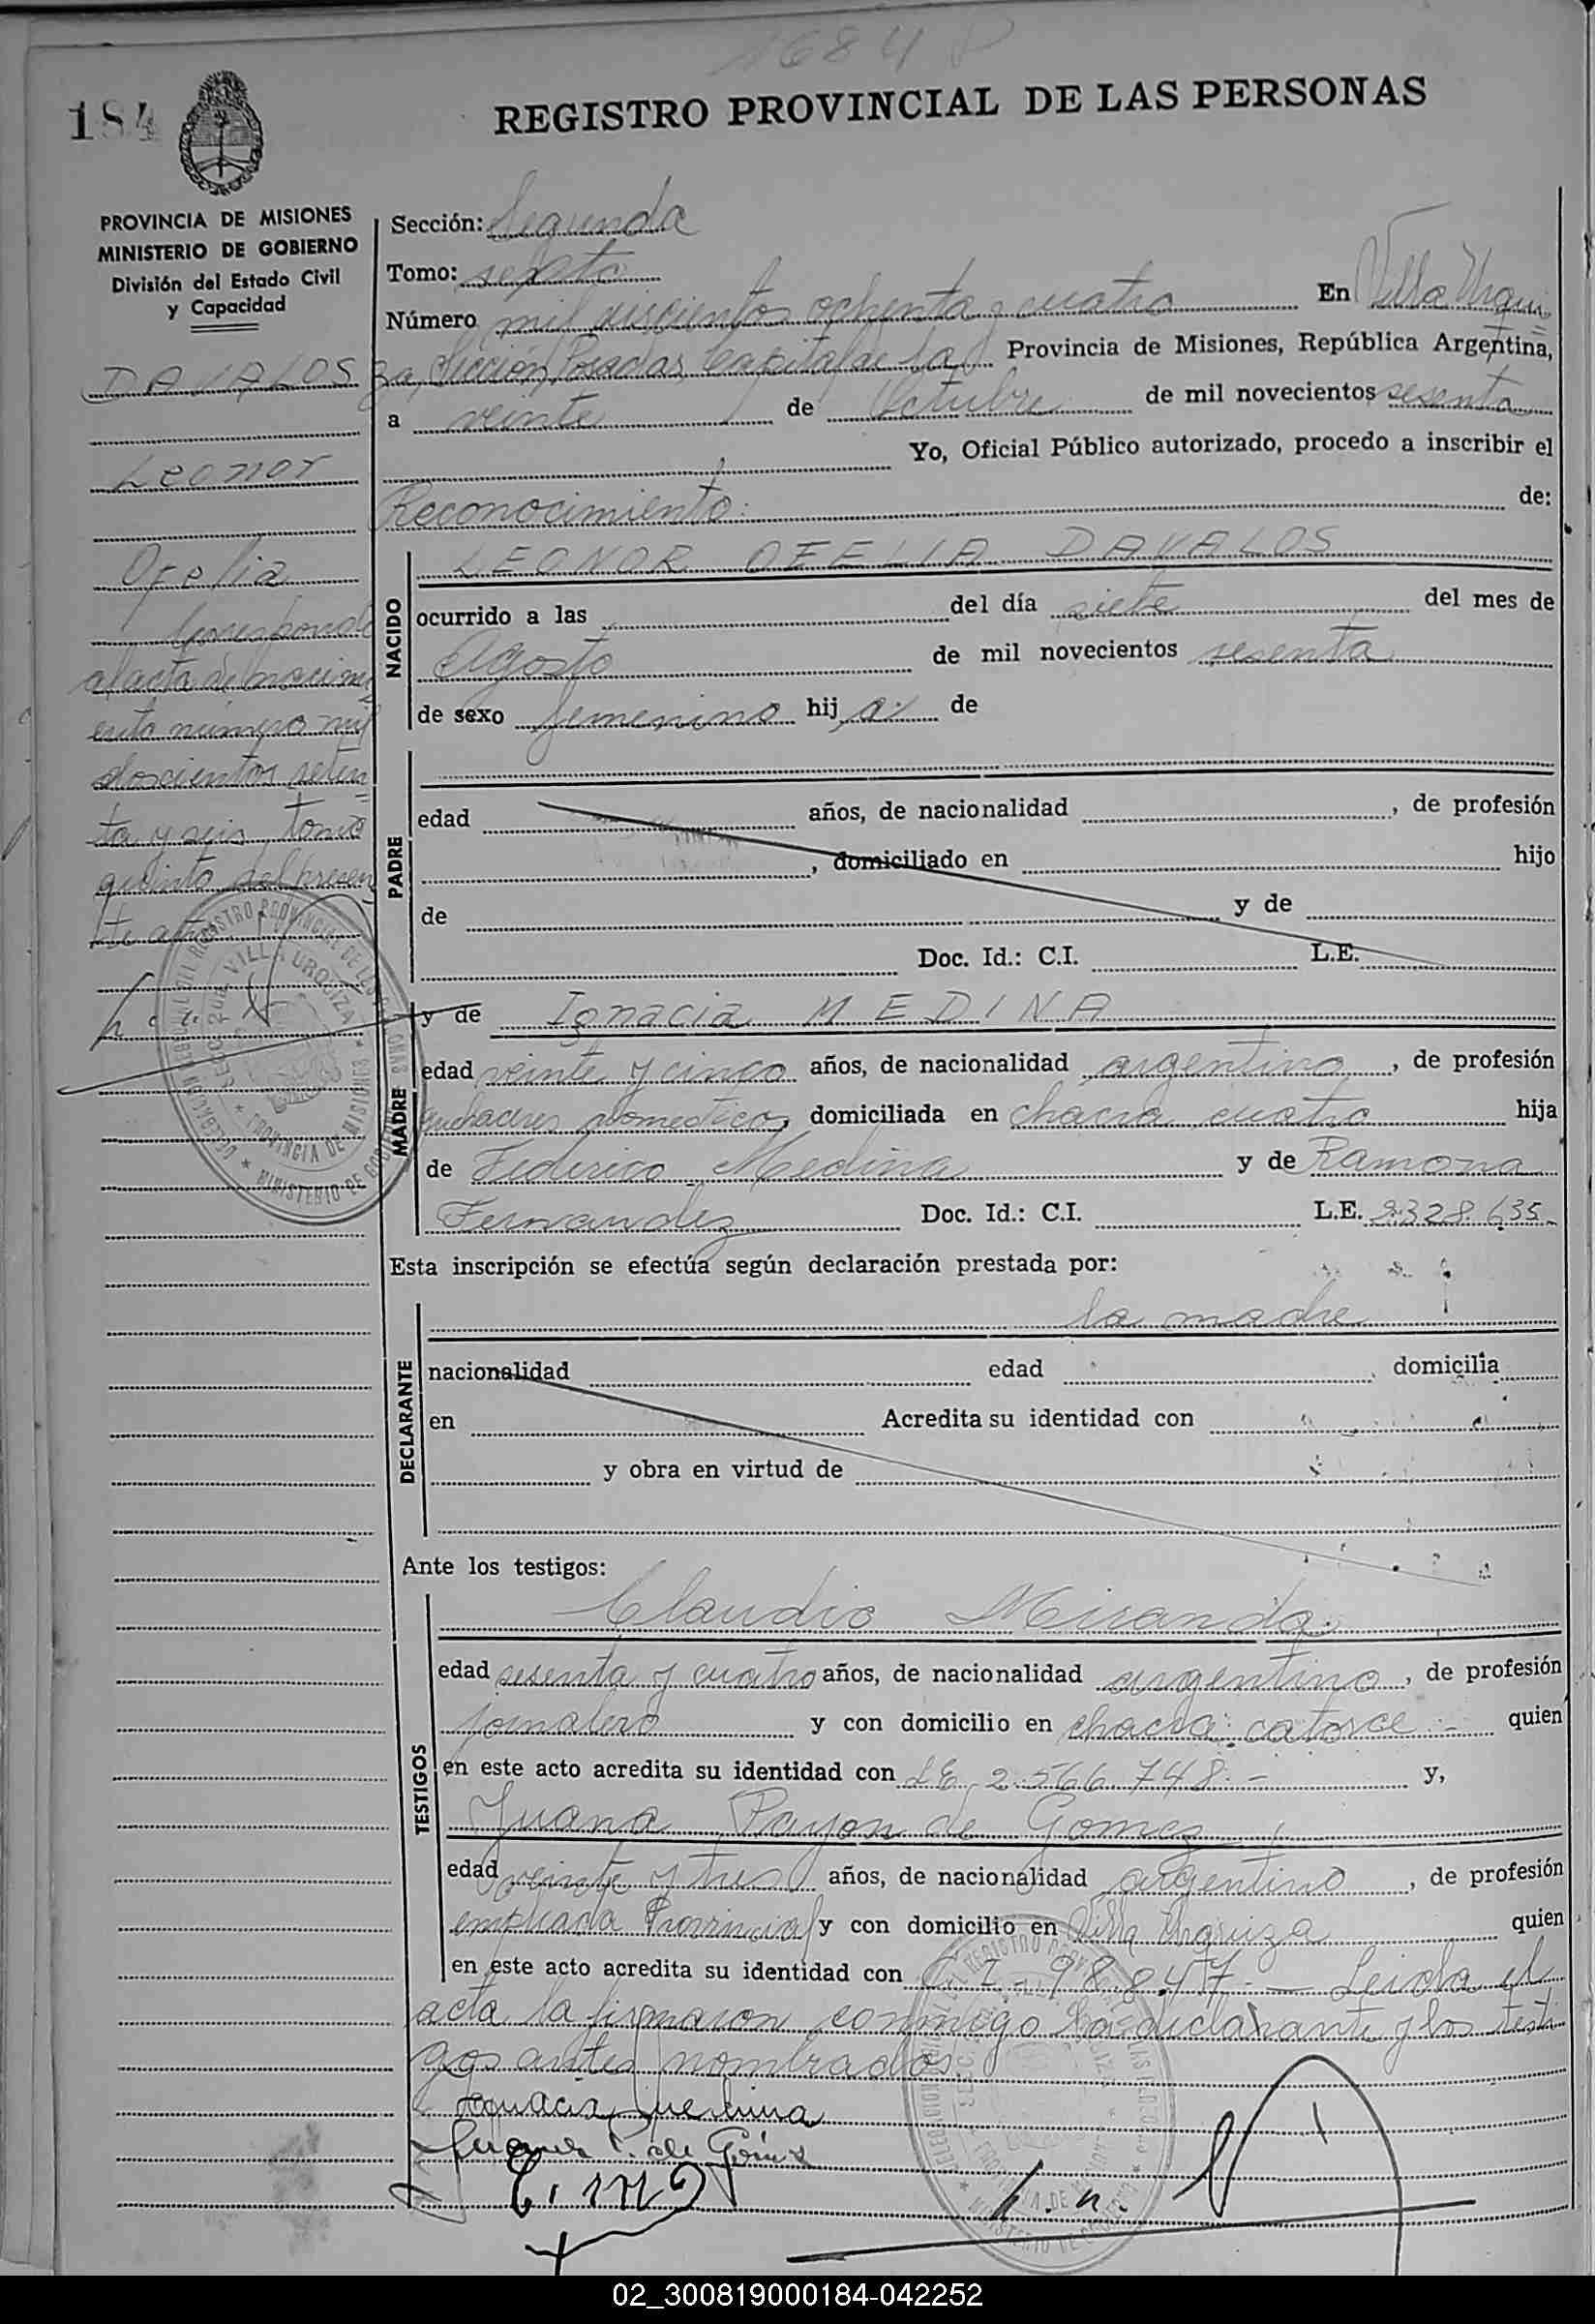 1684
184
REGISTRO PROVINCIAL DE LAS PERSONAS
PROVINCIA DE MISIONES
MINISTERIO DE GOBIERNO
División del Estado Civil
y Capacidad
DAVALOS
Leonor
Ofelia
Corresponde
al acta de nacimi
ento número mil
doscientos seten
ta y seis tomo
quinto del presen
te año
Sección: Segunda
Tomo: sexto
Número mil seiscientos ochenta y cuatro En Villa Urqui
za, Sección Posadas Capital de la Provincia de Misiones, República Argentina,
a veinte de Octubre de mil novecientos sesenta
Yo, Oficial Público autorizado, procedo a inscribir el
Reconocimiento: de:
NACIDO
LEONOR OFELIA DAVALOS
ocurrido a las del día siete del mes de
Agosto de mil novecientos sesenta
de sexo femenino hija de
PADRE
edad años, de nacionalidad , de profesión
, domiciliado en hijo
de y de
Doc. Id.: C.I. L.E.
MADRE
y de Ignacia MEDINA
edad veinte y cinco años, de nacionalidad argentino, de profesión
quehaceres domesticos, domiciliada en chacra cuatro hija
de Federico Medina y de Ramona
Fernandez Doc. Id.: C.I. L.E. 2.328.635
Esta inscripción se efectúa según declaración prestada por:
DECLARANTE
la madre
nacionalidad edad , domicilia
en Acredita su identidad con
y obra en virtud de
Ante los testigos:
TESTIGOS
Claudio Miranda
edad sesenta y cuatro años, de nacionalidad argentino, de profesión
jornalero y con domicilio en chacra catorce.- quien
en este acto acredita su identidad con LE 2.566.748.- y,
Juana Payon de Gomez
edad veinte y tres años, de nacionalidad argentino, de profesión
empleada Provincial y con domicilio en Villa Urquiza quien
en este acto acredita su identidad con C.I. 98.847.- Leida el
acta la firmaron conmigo la declarante y los testi
gos antes nombrados.
Ignacia Medina
Juana P. de Gómez
02_300819000184-042252